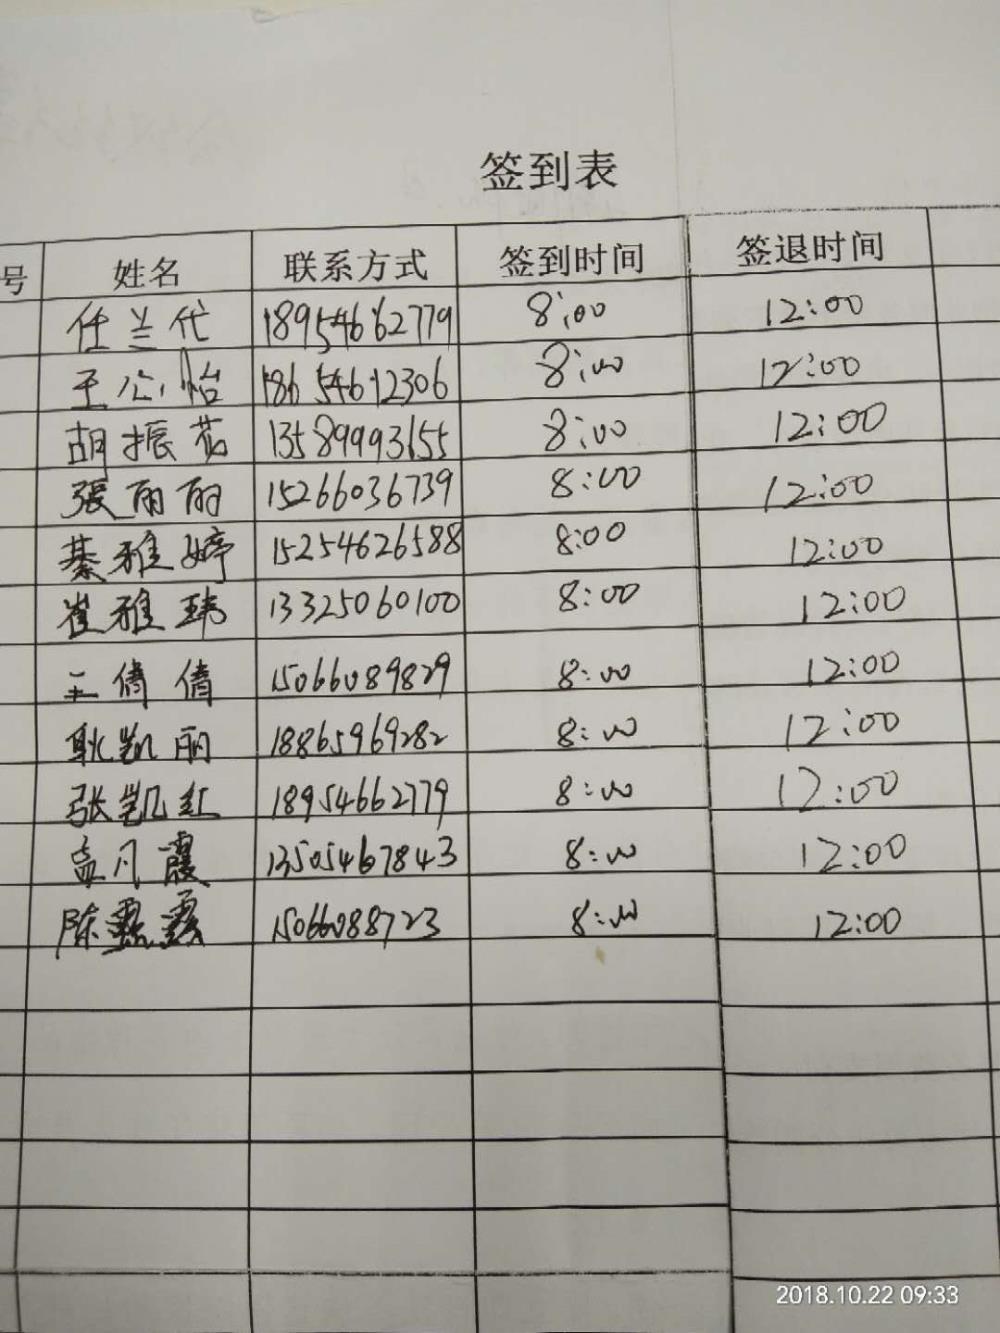 签到表
号 姓名 联系方式 签到时间 签退时间
任兰代 18954662779 8:00 12:00
王心怡 18654612306 8:00 12:00
胡振花 13589993655 8:00 12:00
張丽丽 15266036739 8:00 12:00
綦雅婷 15254626588 8:00 12:00
崔雅玮 13325060100 8:00 12:00
王倩倩 15066089829 8:00 12:00
耿凯丽 18865969282 8:00 12:00
张凯红 18954662779 8:00 12:00
孟凡霞 13505467843 8:00 12:00
陈露露 15066088723 8:00 12:00
2018.10.22 09:33